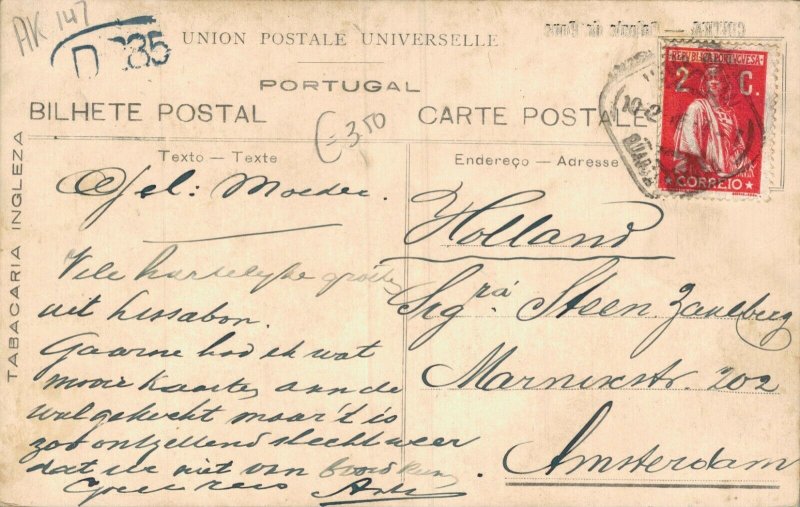 AK 147
D 335
UNION POSTALE UNIVERSELLE
PORTUGAL
BILHETE POSTAL
CARTE POSTALE
(= 3.50
Texto — Texte
Endereço — Adresse
TABACARIA INGLEZA
REPUBLICA PORTUGUESA
2 C.
CORREIO
Gel: Moeder.
Vele hartelijke groeten
uit Lissabon.
Gaarne had ik wat
mooie kaarten aan de
wal gekocht maar 't is
zoo ontzettend slecht weer
dat we niet van boord
Goede reis
Holland
Sigra Steen Zanlberg
Marnixstr. 202
Amsterdam